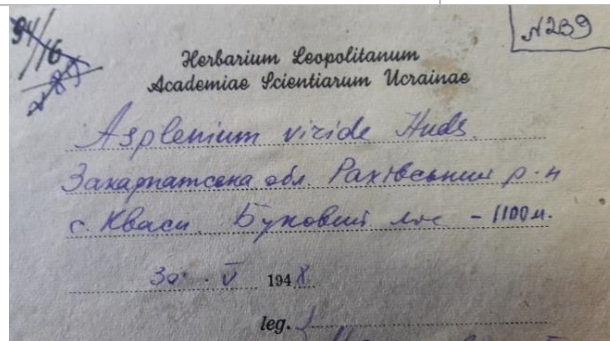 94/16
N239
Herbarium Leopolitanum
Academiae Scientiarum Ucrainae
Asplenium viride Huds.
Закарпатська обл. Рахівський р-н
с. Кваси. Буковий ліс - 1100 м.
30 · V 1948
leg.